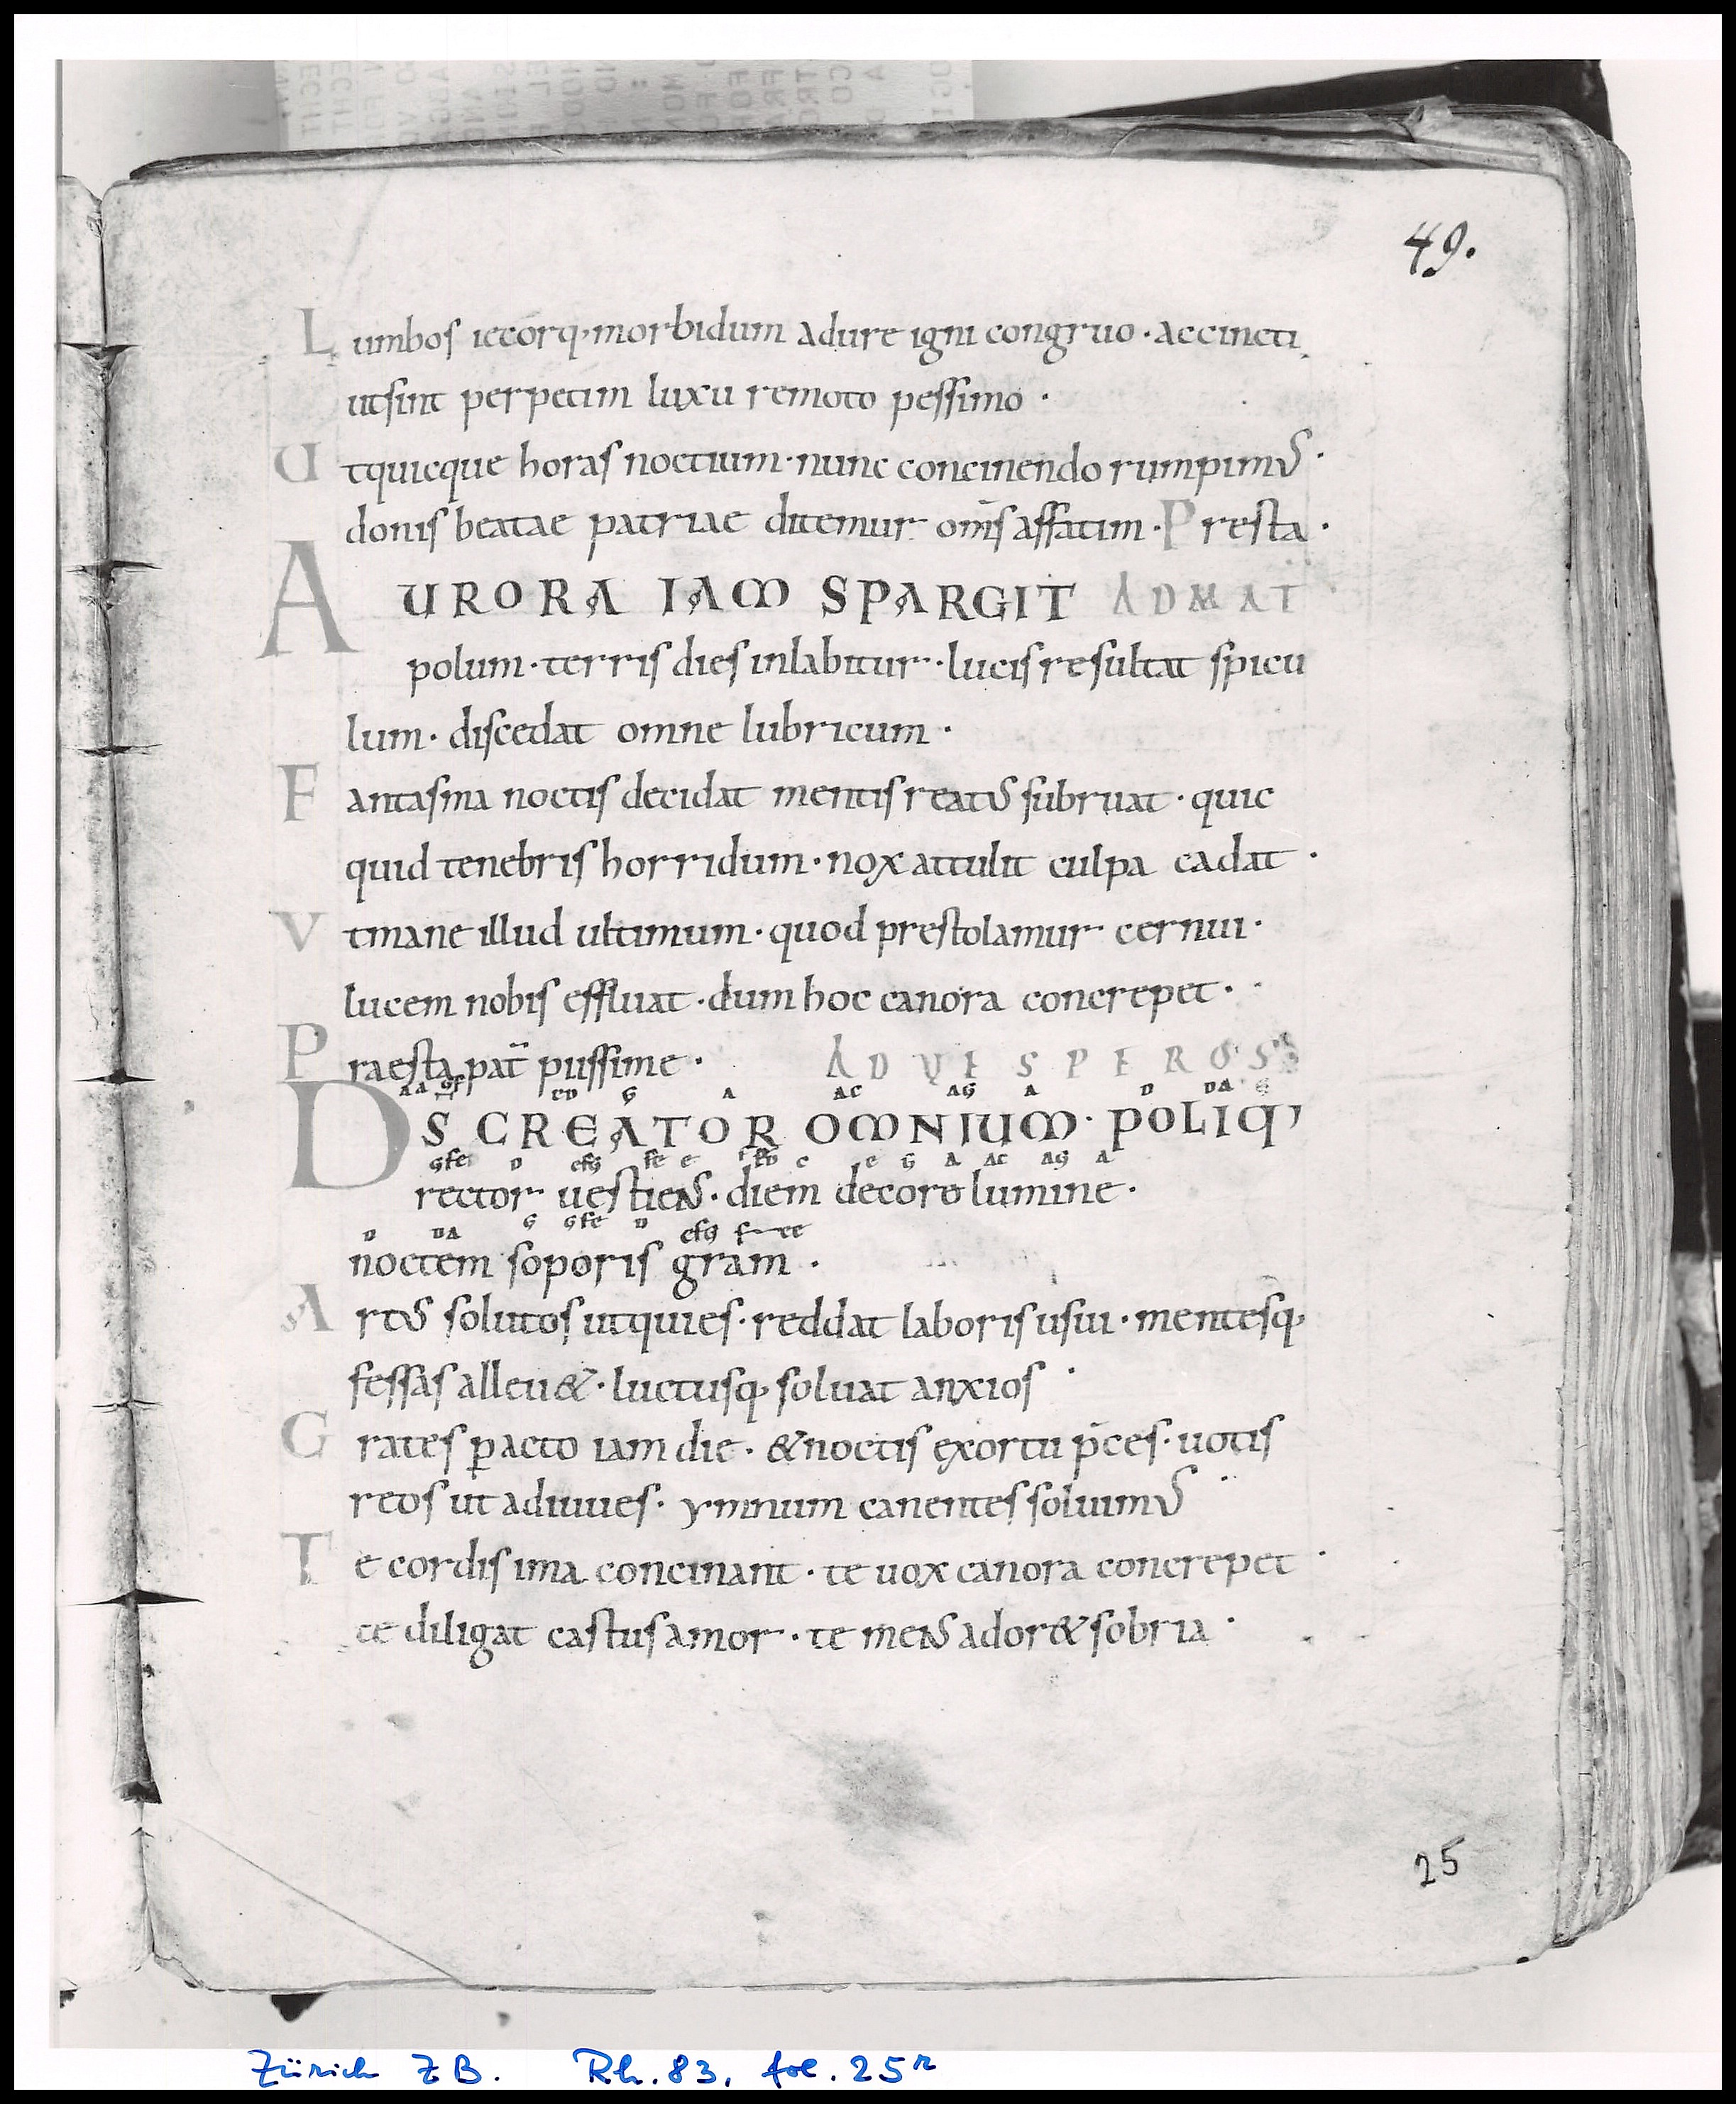 49.
Lumbos iecorq; morbidum adure igni congruo · accincti
utsint perpetim luxu remoto pessimo ·
Utquicque horas noctium · nunc concinendo rumpimus ·
donis beatae patriae ditemur om̄s affatim · Presta ·
AURORA IAM SPARGIT AD MAT
polum · terris dies inlabitur · lucis resultat spicu
lum · discedat omne lubricum ·
Fantasma noctis decidat mentis reatus subruat · quic
quid tenebris horridum · nox attulit culpa cadat ·
Vtmane illud ultimum · quod prestolamur cernui ·
lucem nobis effluat · dum hoc canora concrepet ·
Praesta pat̄ piissime · AD VESPEROS
CD G A AC AG A D DA G
DS CREATOR OMNIUM · POLIQ;
gfe D efg fe e c e G A AC AG A
rector uestiens · diem decoro lumine ·
D DA G Gfe D efg
noctem soporis gram ·
Artus solutos utquies · reddat laboris usui · mentesq;
fessas alleu& · luctusq; soluat anxios ·
Grates ꝑacto iam die · & noctis exortu p̄ces · uotis
reos ut adiuues · ymnum canentes soluimus
Te cordis ima concinant · te uox canora concrepet ·
te diligat castus amor · te mens ador& sobria ·
25
Zürich ZB. Rh. 83, fol. 25r